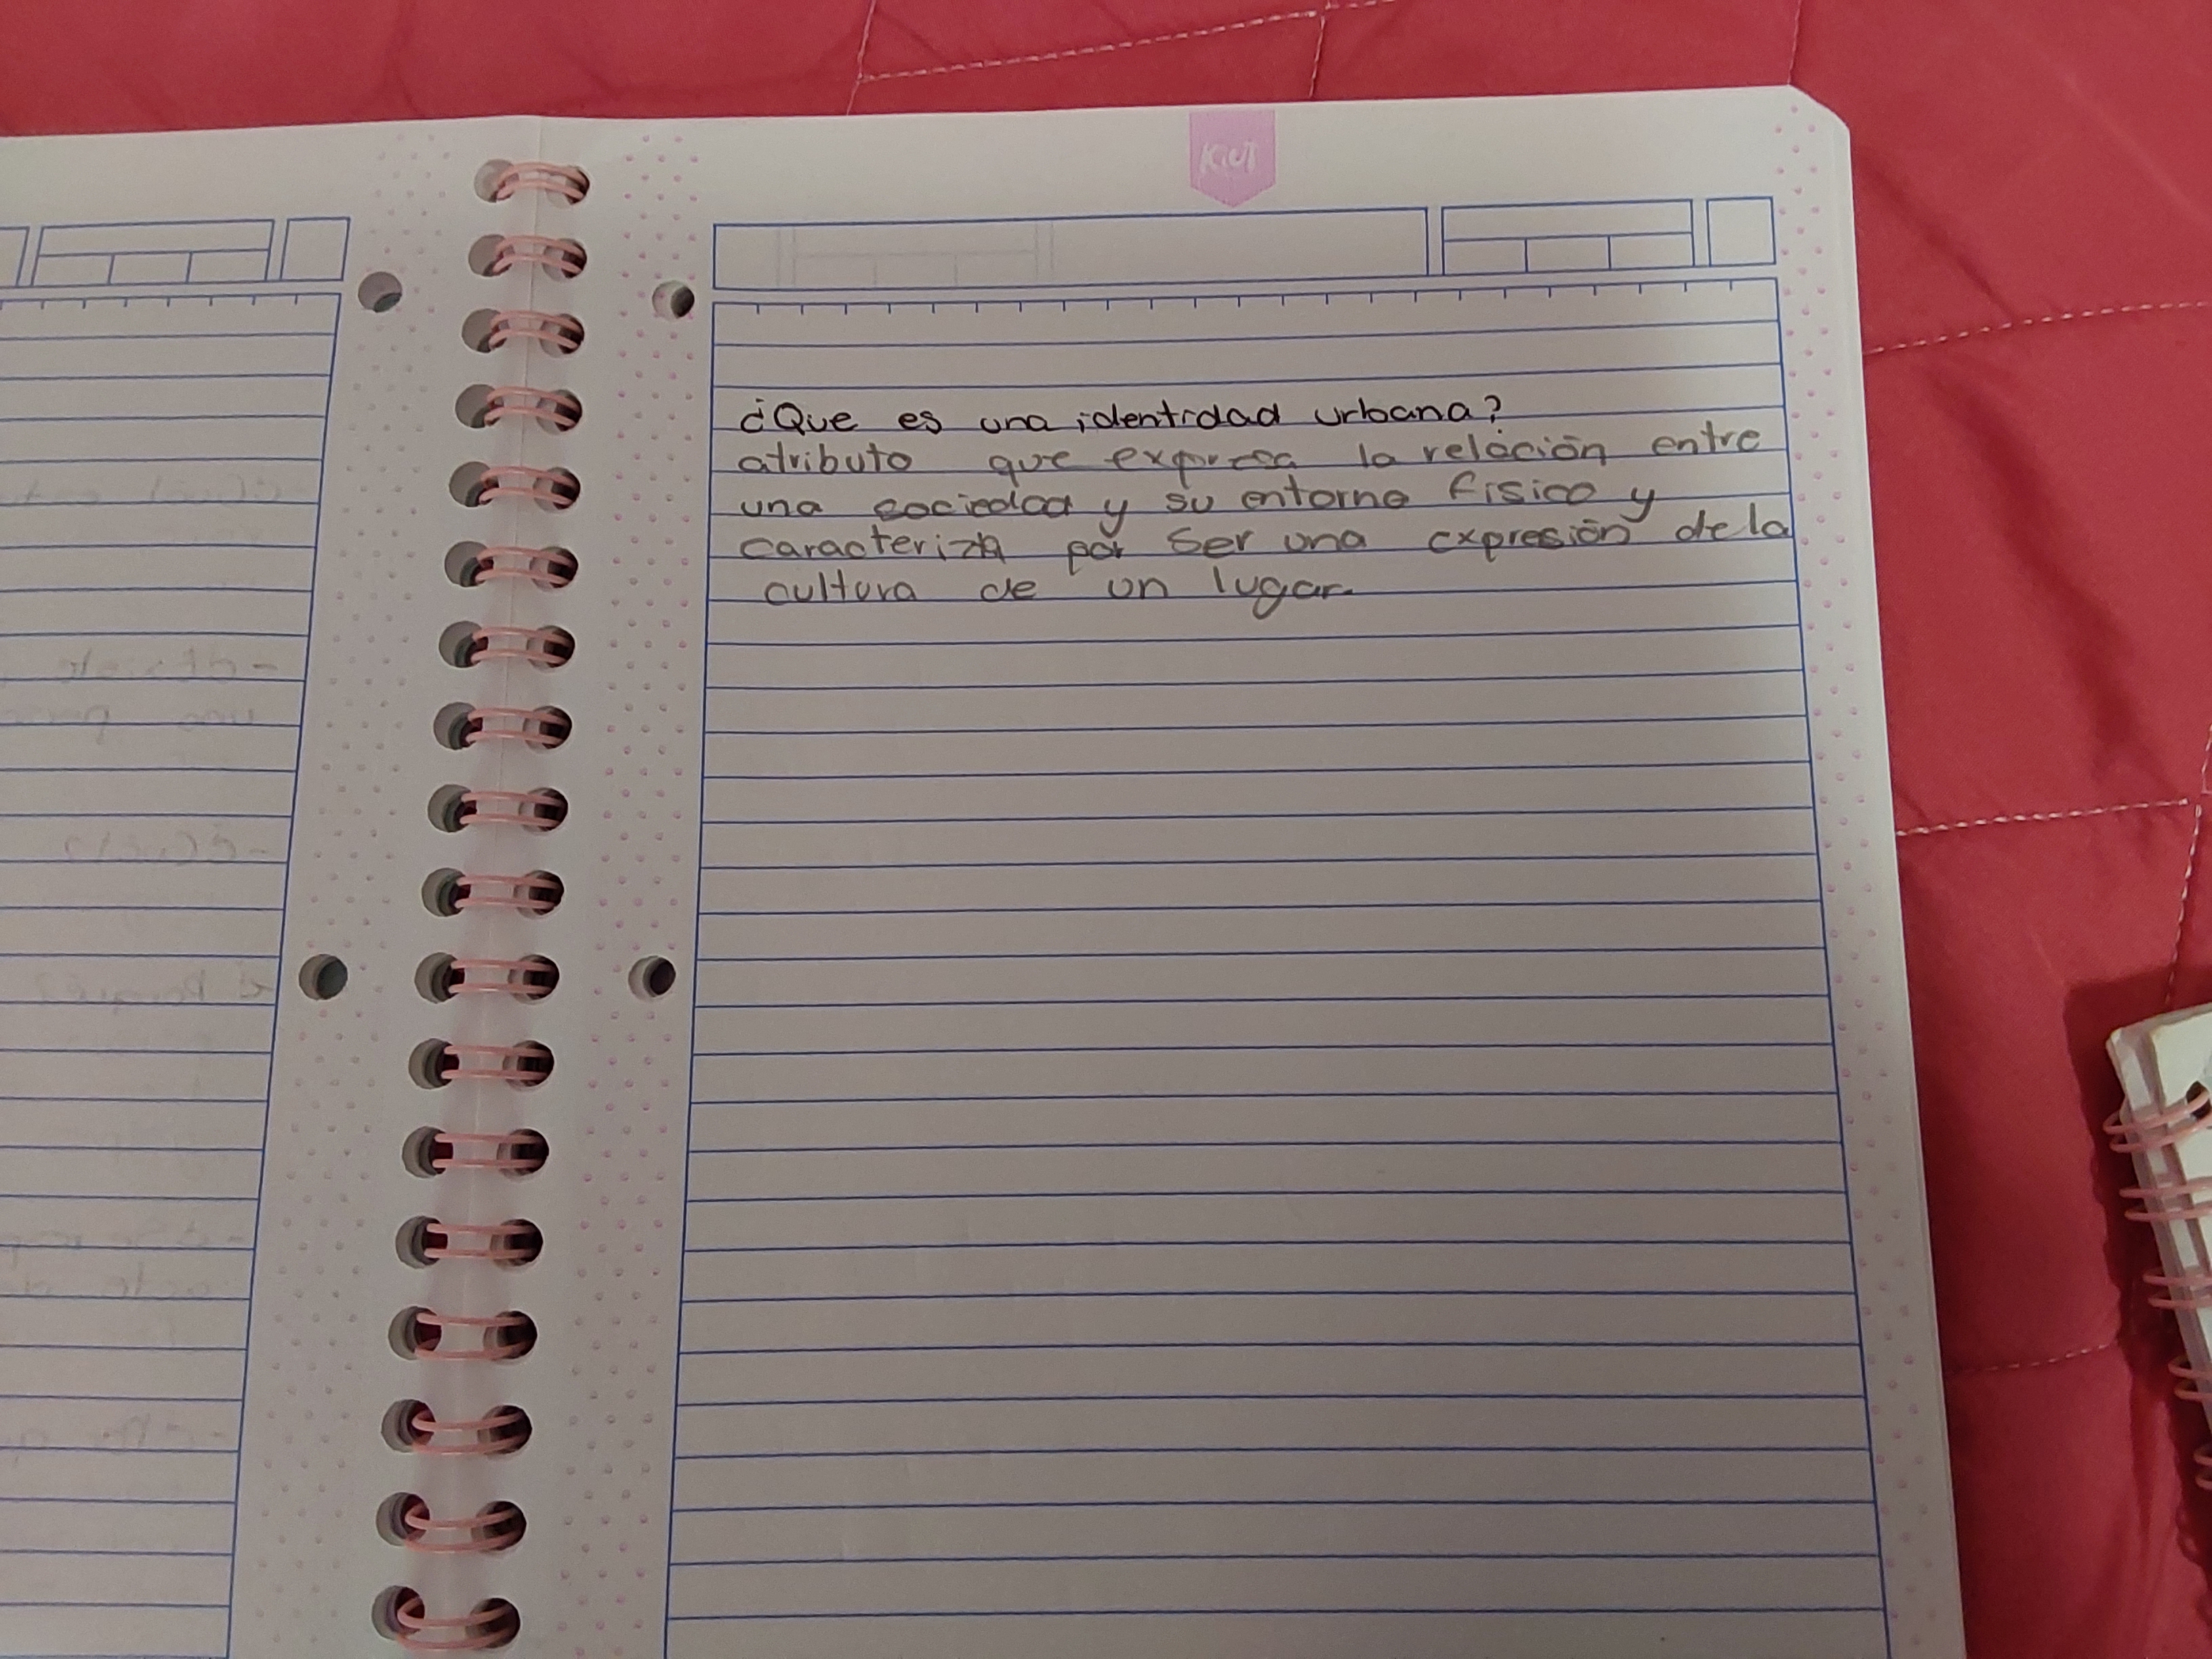 KiUT
¿Que es una identidad urbana?
atributo que expresa la relación entre
una sociedad y su entorno fisico y
caracteriza por ser una expresión de la
cultura de un lugar.